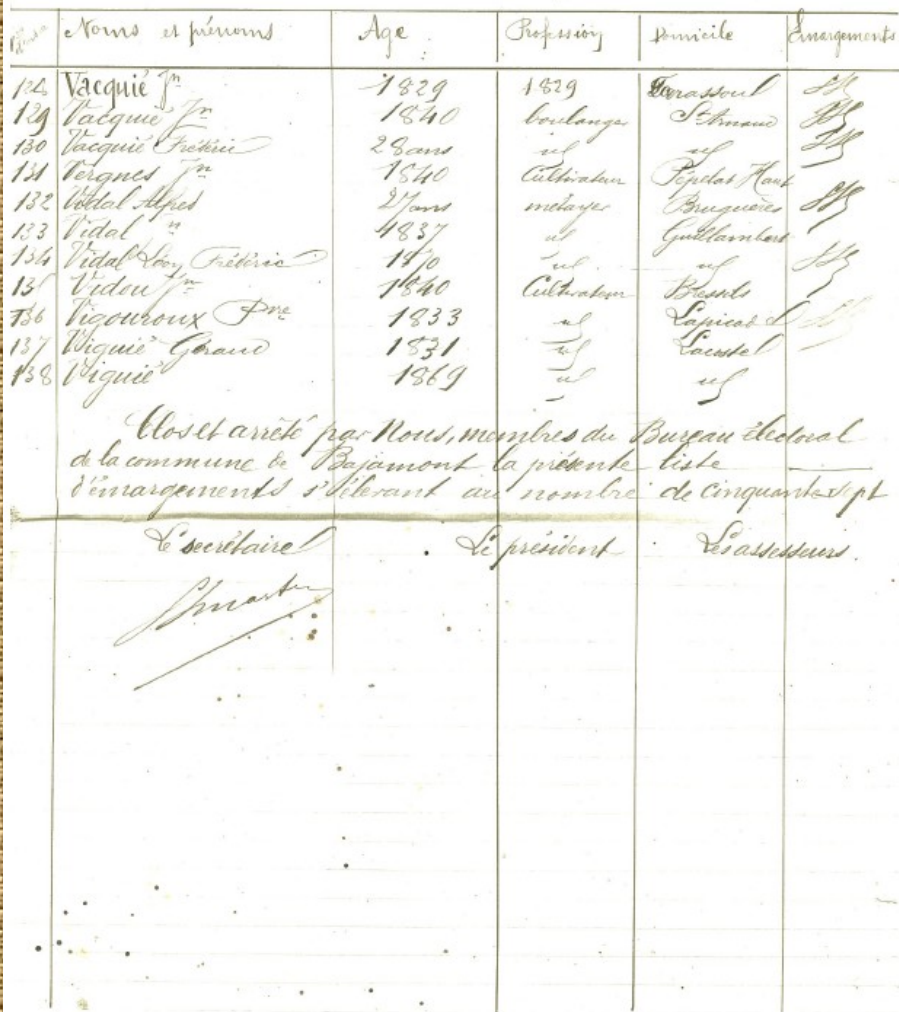 Noms et prénoms Age Profession Domicile Émargements
128 Vacquié Jn 1829 1829 Tarassoul
129 Vacquié Jn 1840 boulanger St Arnaud
130 Vacquié Frédéric 28 ans id id
131 Vergnes Jn 1840 Cultivateur Pépelat Haut
132 Vidal 27 ans métayer Bruguières
133 Vidal Jn 1837 id Guillambert
134 Vidal Léon Frédéric 1870 id id
135 Vidou Jn 1840 Cultivateur Bressols
136 Vigouroux Pre 1833 id
137 Viguié Géraud 1831 id Lacostel
138 Viguié 1869 id id
Clos et arrêté par Nous, membres du Bureau électoral
de la commune de Bajamont la présente liste
d'émargements s'élevant au nombre de cinquante-sept
Le secrétaire Le président Les assesseurs.